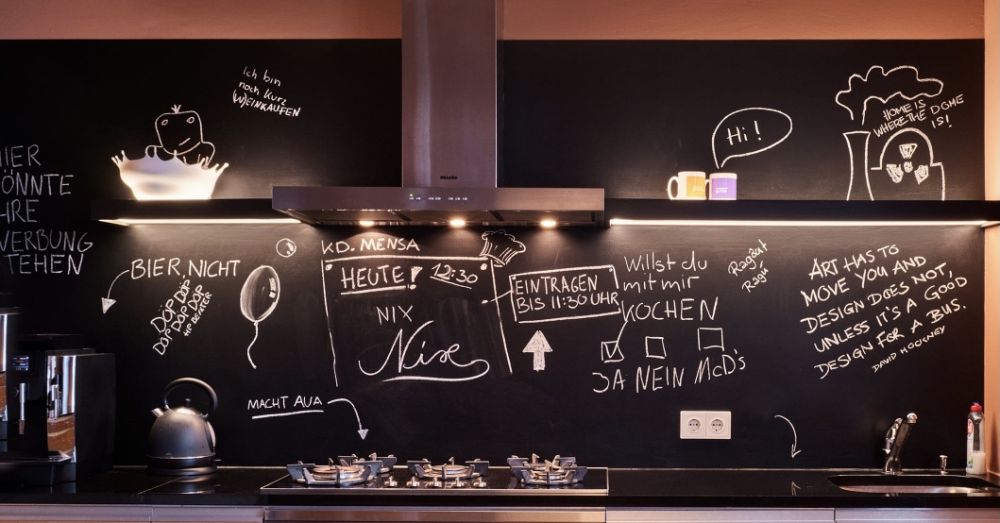 Ich bin
noch kurz
(W)EINKAUFEN
Hi!
HOME IS
WHERE THE DOME
IS!
IER
ÖNNTE
HRE
ERBUNG
TEHEN
MIELE
BIER, NICHT
DÖP DÖP
DÖP DÖP
DÖP DÖP
HP BAXTER
KD. MENSA
HEUTE! 12:30
NIX
EINTRAGEN
BIS 11:30 UHR
Willst du
mit mir
KOCHEN
JA NEIN McD's
Ragout
Ragu
ART HAS TO
MOVE YOU AND
DESIGN DOES NOT,
UNLESS IT'S A GOOD
DESIGN FOR A BUS.
DAVID HOCKNEY
MACHT AUA